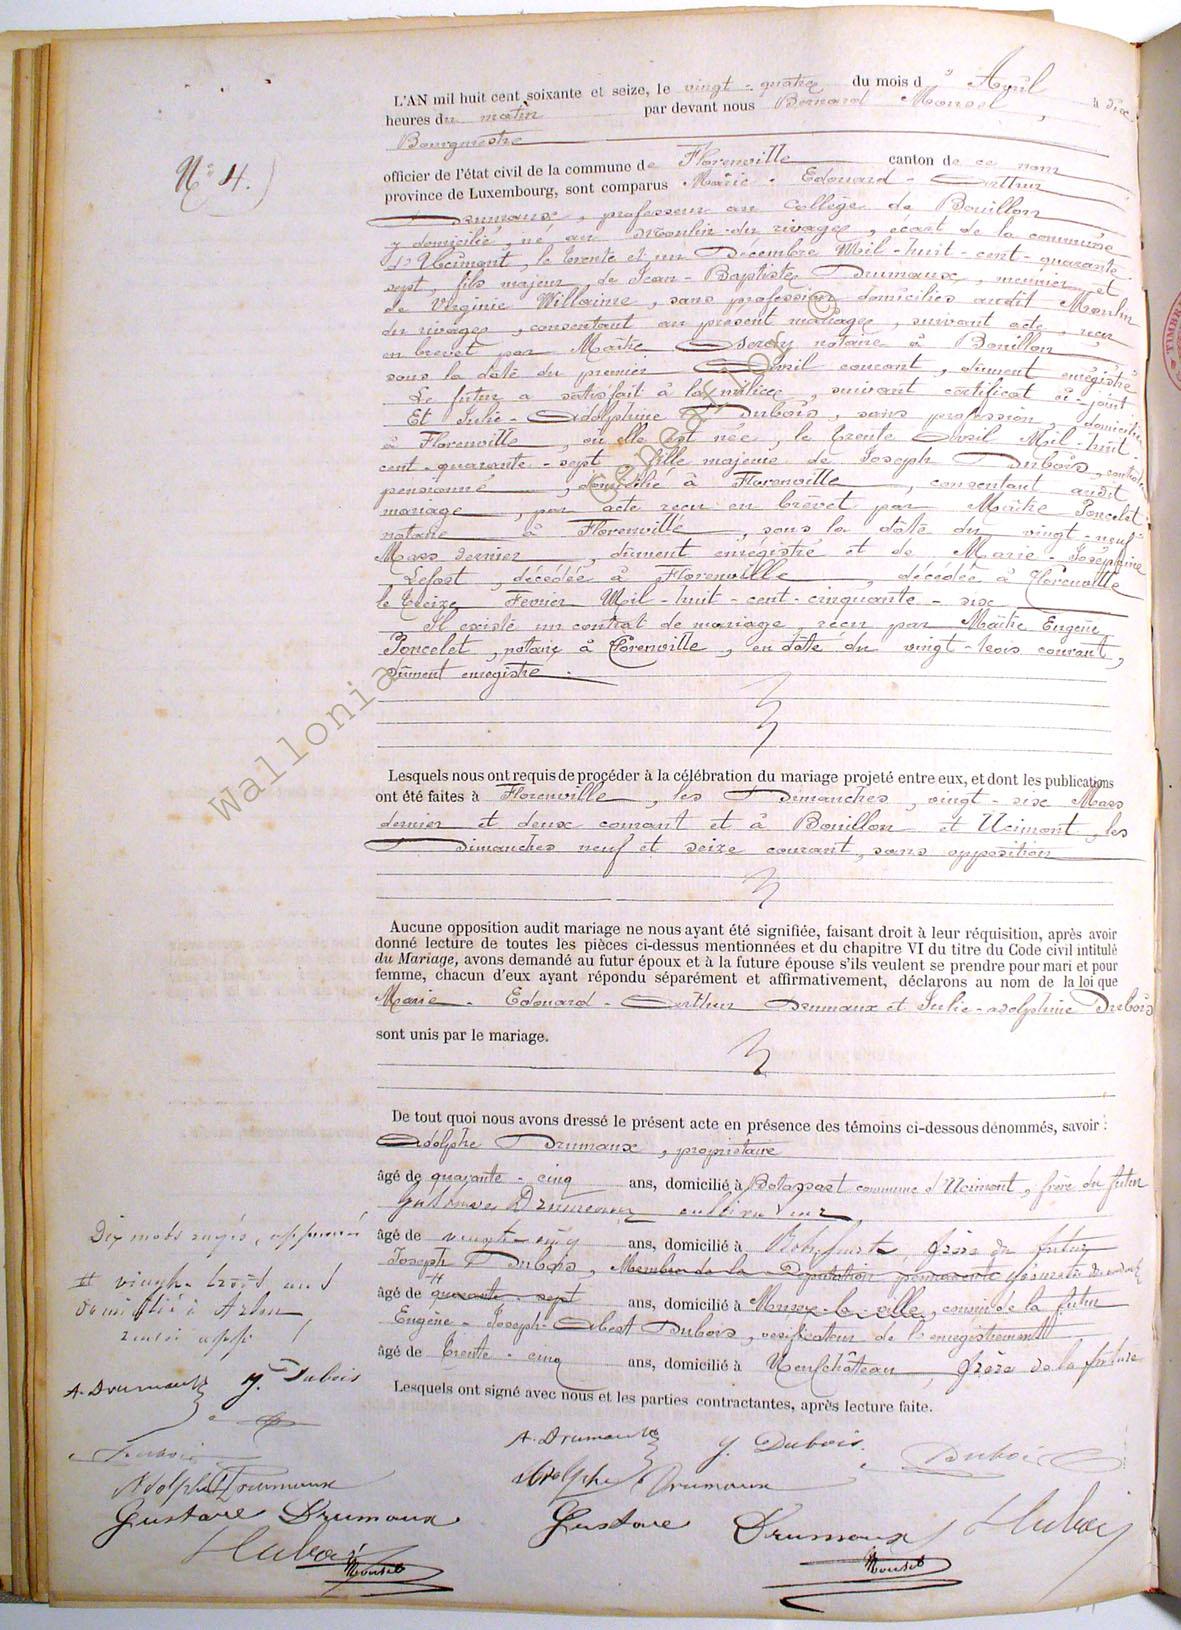 L'AN mil huit cent soixante et seize, le vingt-quatre du mois d'Avril à dix
heures du matin par devant nous Bernard Mousel,
Bourgmestre
N° 4.
officier de l'état civil de la commune de Florenville canton de ce nom
province de Luxembourg, sont comparus Marie-Edouard-Arthur
Drumaux, professeur au Collège de Bouillon
y domicilié, né au Moulin-du rivage, écart de la commune
d'Ucimont, le trente et un Décembre Mil-huit-cent-quarante
sept, fils majeur de Jean-Baptiste Drumaux, meunier et
de Virginie Willaime, sans profession domiciliés audit Moulin
du rivage, consentant au présent mariage, suivant acte, reçu
en brevet par Maître notaire à Bouillon
sous la date du premier Avril courant, dûment enregistré
Le futur a satisfait à la milice, suivant certificat ci-joint.
Et Julie-Adolphine Dubois, sans profession, domiciliée
à Florenville, où elle est née, le trente Avril Mil-huit-
cent-quarante-sept, fille majeure de Joseph Dubois,
pensionné, domicilié à Florenville, consentant audit
mariage, par acte reçu en brevet par Maître Poncelet
notaire à Florenville, sous la date du vingt-neuf
Mars dernier, dûment enregistré et de Marie-Joséphine
Lefort, décédée à Florenville, décédée à Florenville
le treize Février Mil-huit-cent-cinquante-six
Il existe un contrat de mariage, reçu par Maître Eugène
Poncelet, notaire à Florenville, en date du vingt-trois courant,
dûment enregistré.
Lesquels nous ont requis de procéder à la célébration du mariage projeté entre eux, et dont les publications
ont été faites à Florenville, les Dimanches, vingt-six Mars
dernier et deux courant et à Bouillon et Ucimont, les
Dimanches neuf et seize courant, sans opposition
Aucune opposition audit mariage ne nous ayant été signifiée, faisant droit à leur réquisition, après avoir
donné lecture de toutes les pièces ci-dessus mentionnées et du chapitre VI du titre du Code civil intitulé
du Mariage, avons demandé au futur époux et à la future épouse s'ils veulent se prendre pour mari et pour
femme, chacun d'eux ayant répondu séparément et affirmativement, déclarons au nom de la loi que
Marie-Edouard-Arthur Drumaux et Julie-adolphine Dubois
sont unis par le mariage.
De tout quoi nous avons dressé le présent acte en présence des témoins ci-dessous dénommés, savoir :
Adolphe Drumaux, propriétaire
âgé de quarante-cinq ans, domicilié à Botassart commune d'Ucimont, frère du futur
Gustave Drumaux, cultivateur
âgé de vingt-cinq ans, domicilié à frère du futur
Joseph Dubois, Membre de la Députation permanente géomètre du cadastre
âgé de quarante-sept ans, domicilié à Musy-la-ville, cousin de la futur
Eugène-Joseph-Albert Dubois, vérificateur de l'enregistrement
âgé de trente-cinq ans, domicilié à Neufchâteau, frère de la future
Lesquels ont signé avec nous et les parties contractantes, après lecture faite.
Dix mots rayés, approuvés
# vingt-trois ans
domicilié à Arlon
renvoi app.
A. Drumaux J. Dubois
Dubois
Adolphe Drumaux
Gustave Drumaux
Dubois
Mousel
A. Drumaux J. Dubois. Dubois
Adolphe Drumaux
Gustave Drumaux Dubois
Mousel
Wallonia Geneafrloi ©
TIMBRE